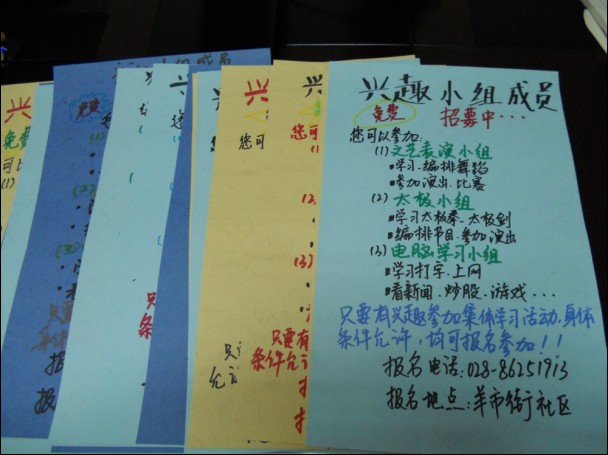 兴趣小组成员
免费 招募中...
您可以参加:
(1)文艺表演小组
▪学习.编排舞蹈
▪参加演出.比赛
(2)太极小组
▪学习太极拳.太极剑
▪编排节目.参加演出
(3)电脑学习小组
▪学习打字.上网
▪看新闻.炒股.游戏...
只要有兴趣参加集体学习活动,身体
条件允许,均可报名参加!!
报名电话:028-86251913
报名地点:羊市街社区